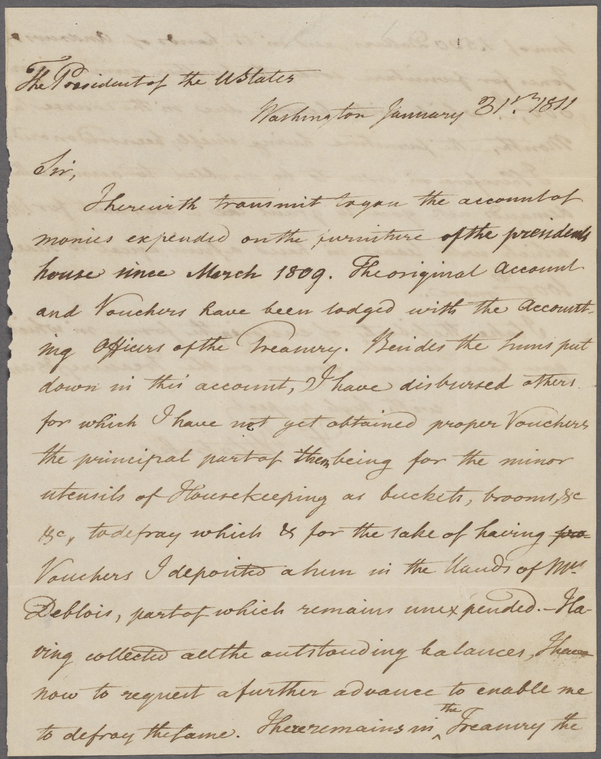 The President of the UStates
Washington January 31st 1811
Sir,
I herewith transmit to you the account of
monies expended on the furniture of the presidents
house since March 1809. The original Account
and Vouchers have been lodged with the Account-
ing Officers of the Treasury. Besides the sums put
down in this account, I have disbursed others
for which I have not yet obtained proper Vouchers
the principal part of them being for the minor
utensils of Housekeeping as buckets, brooms, &c
&c, to defray which & for the sake of having pro
Vouchers I deposited a sum in the hands of Mrs
Deblois, part of which remains unexpended.- Ha-
ving collected all the outstanding balances, I have
now to request a further advance to enable me
to defray the same. There remains in the Treasury the